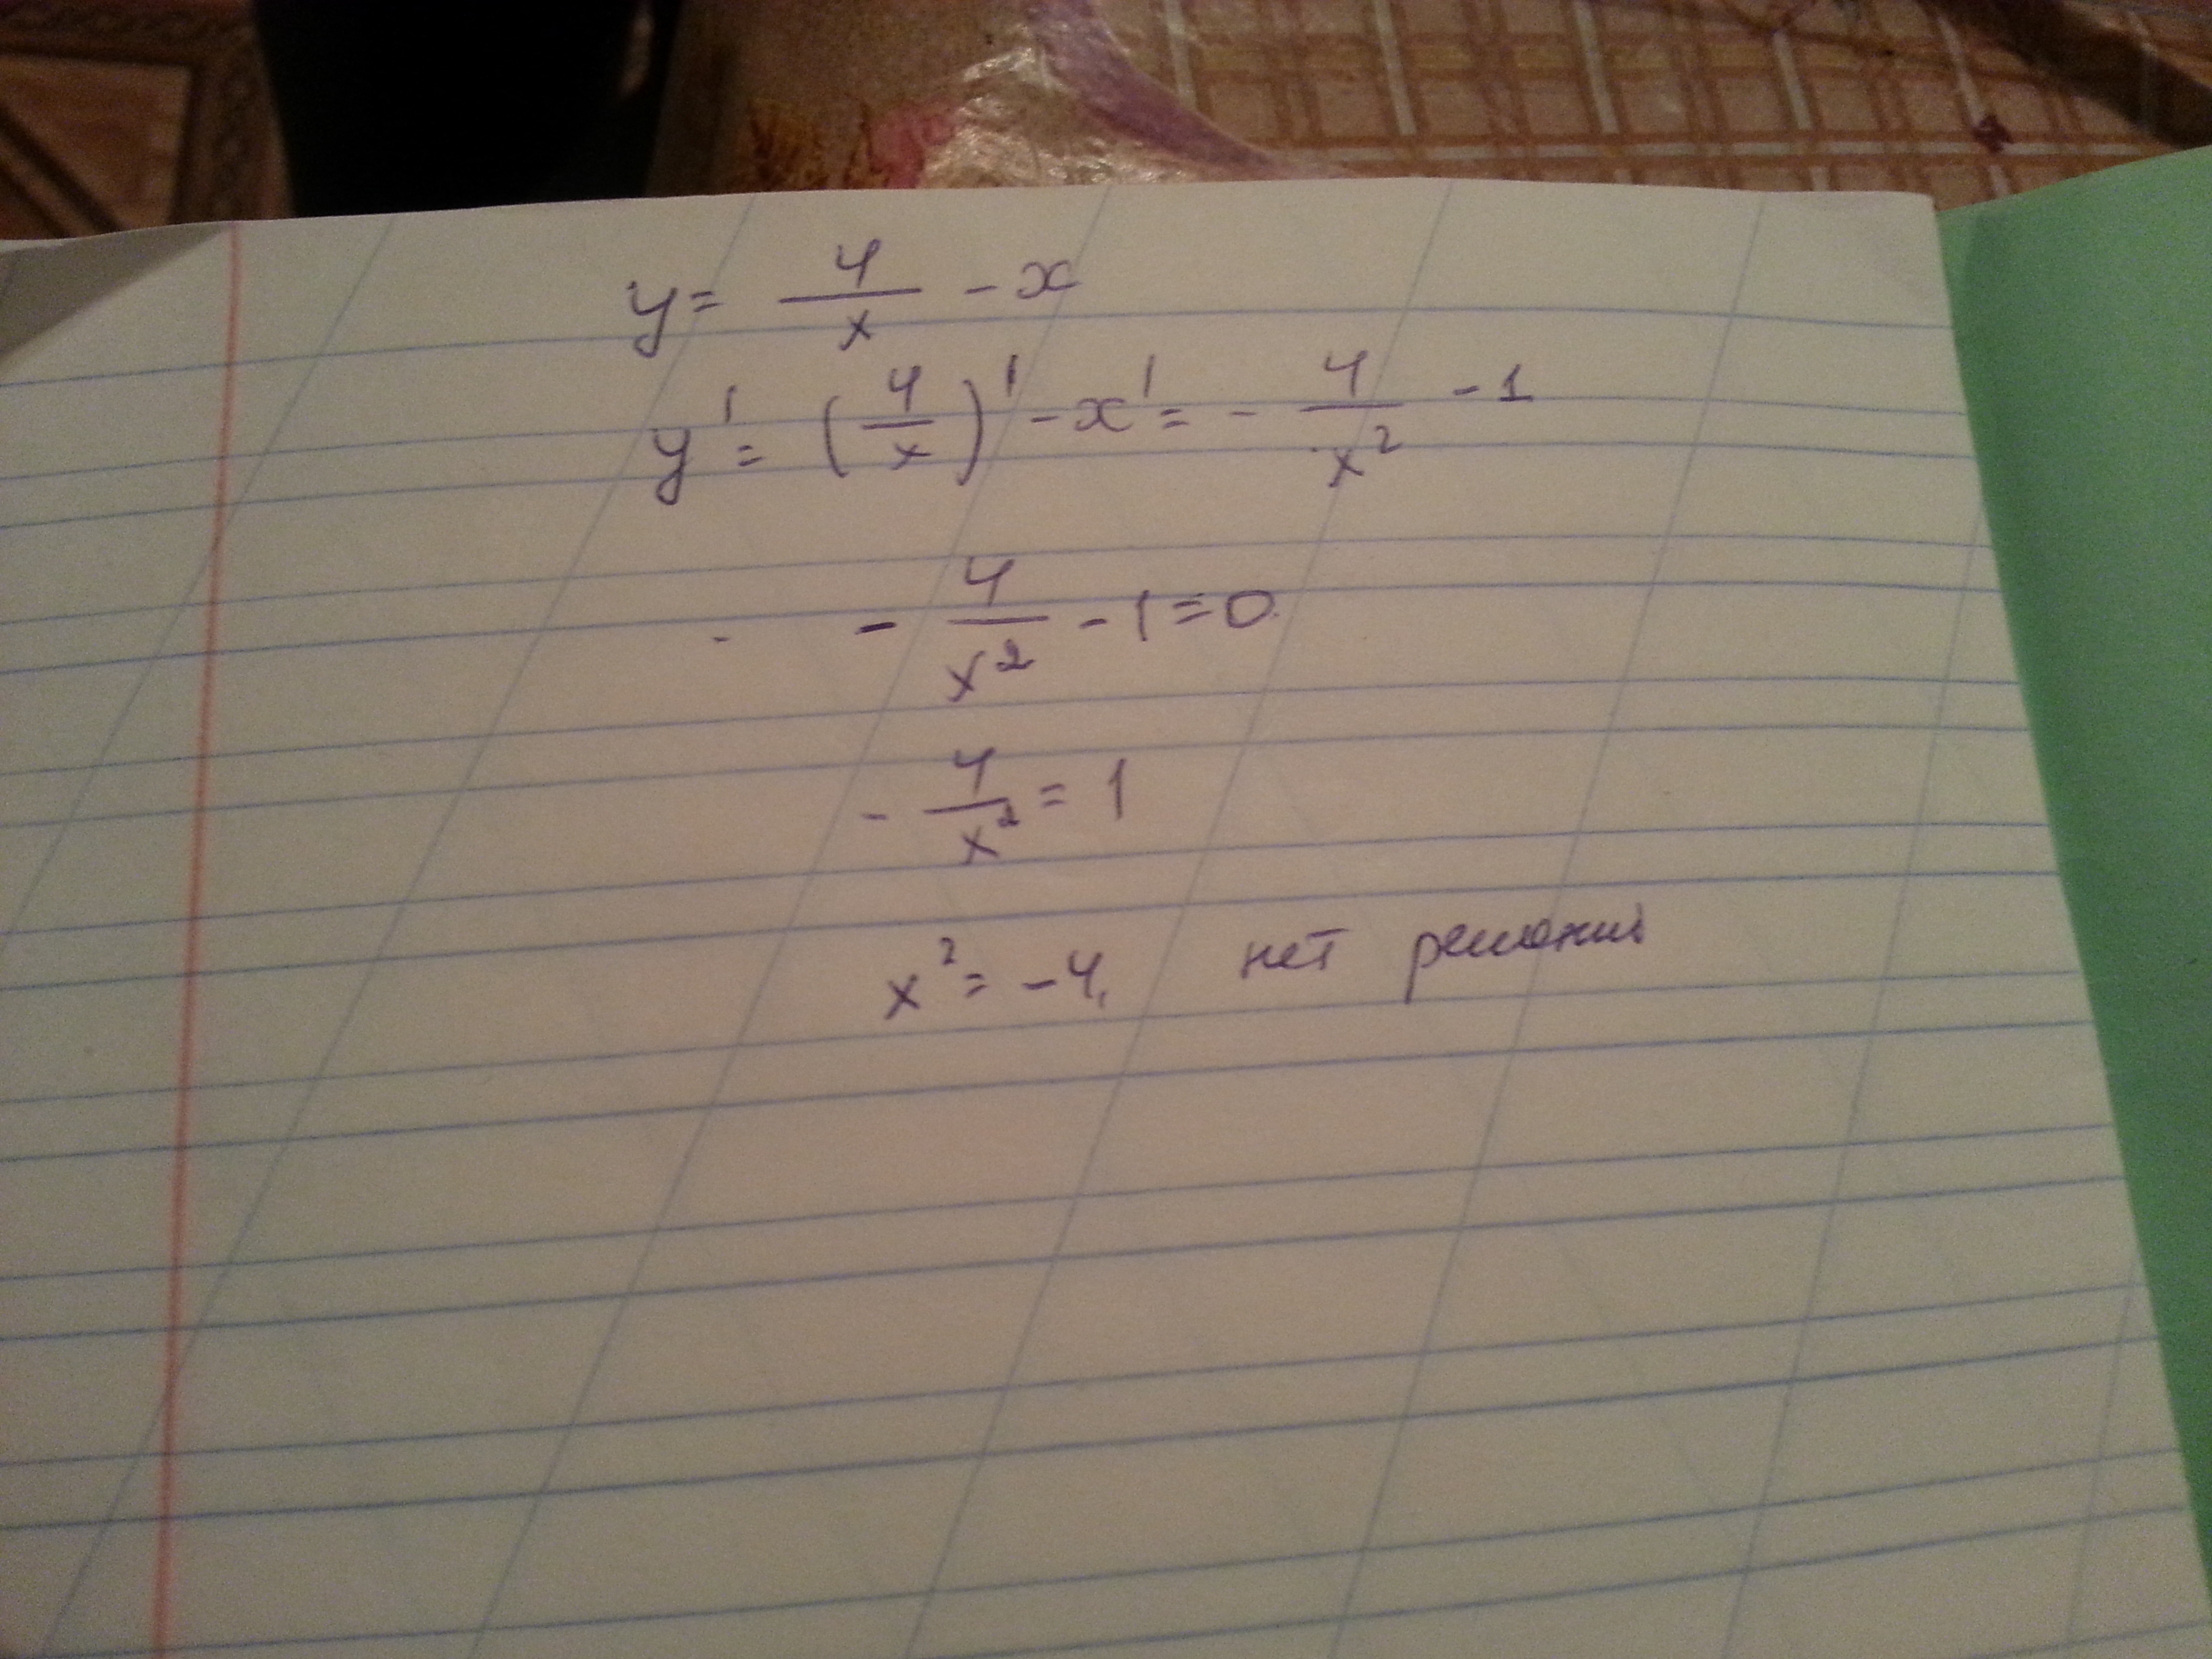 y = 4/x - x
y' = (4/x)' - x' = - 4/x² - 1
- 4/x² - 1 = 0
- 4/x² = 1
x² = -4, нет решений